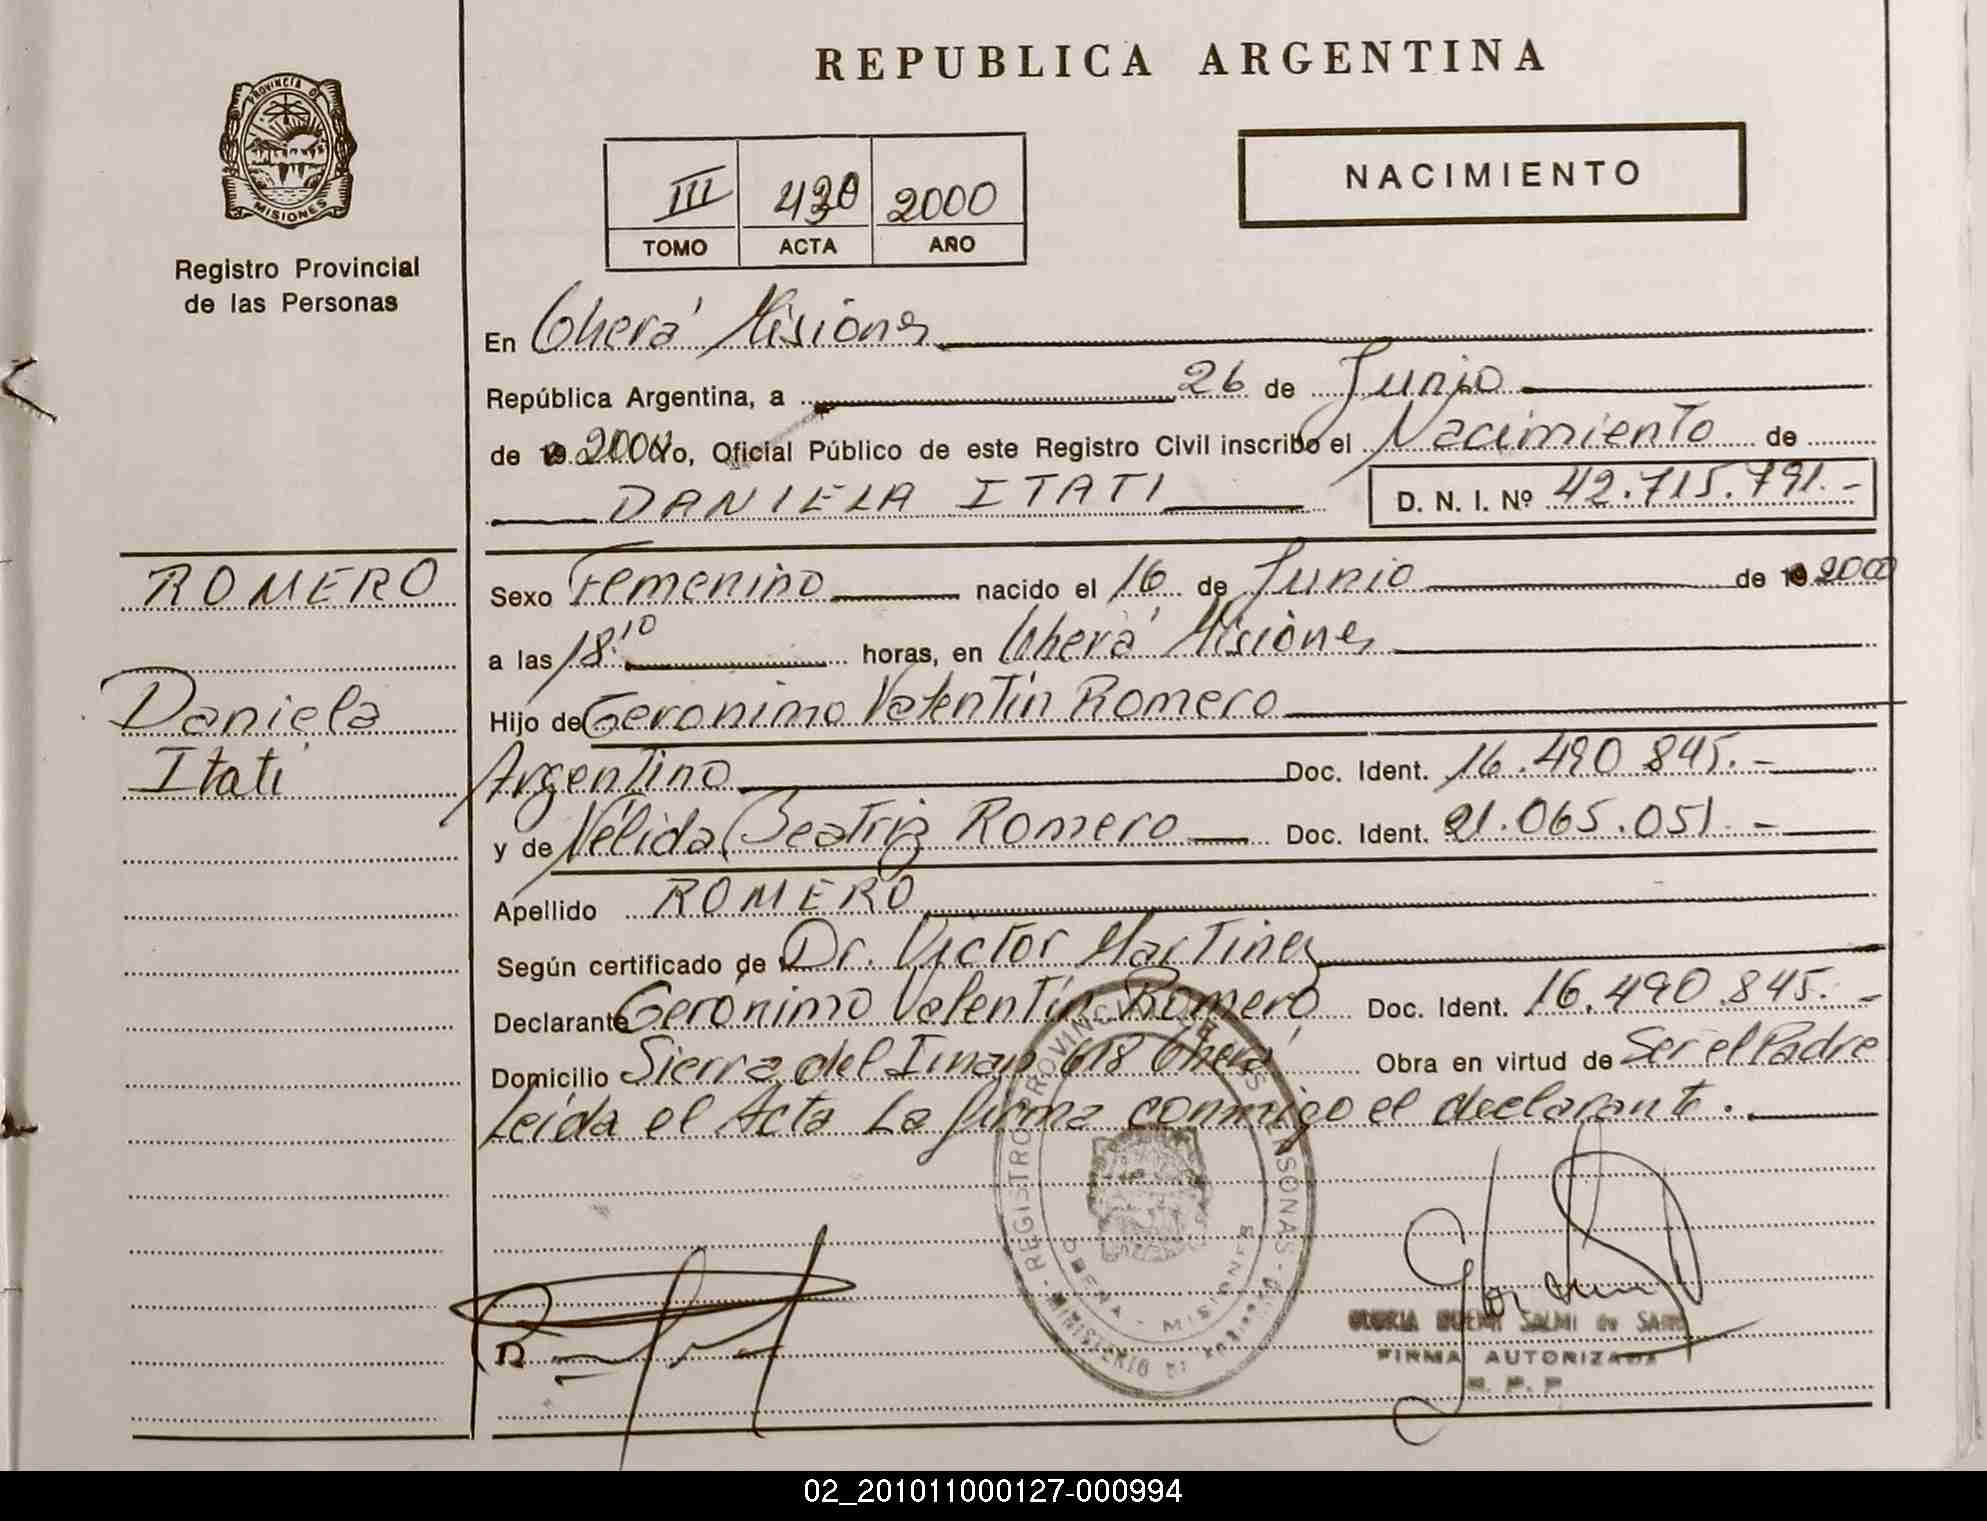 REPUBLICA ARGENTINA
PROVINCIA D
MISIONES
Registro Provincial
de las Personas
NACIMIENTO
III 2000
TOMO ACTA AÑO
En Oberá Misiones
República Argentina, a 26 de Junio
de 2000 Yo, Oficial Público de este Registro Civil inscribo el Nacimiento de
DANIELA ITATI
D. N. I. Nº 42.715.791.-
ROMERO
Daniela
Itatí
Sexo Femenino nacido el 16 de Junio de 2000
a las 18'10 horas, en Oberá Misiones
Hijo de Geronimo Valentín Romero
Argentino Doc. Ident. 16.490.845.-
y de Nélida Beatriz Romero Doc. Ident. 21.065.051.-
Apellido ROMERO
Según certificado de Dr. Victor Martinez
Declarante Gerónimo Valentín Romero Doc. Ident. 16.490.845.-
Domicilio Sierra del Iman 618 Oberá Obra en virtud de Ser el Padre
Leída el Acta La firma conmigo el declarante.
REGISTRO PROVINCIAL DE LAS PERSONAS
OBERA - MISIONES
MINISTERIO
GLORIA SALMI de
FIRMA AUTORIZADA
R. P. P.
02_201011000127-000994